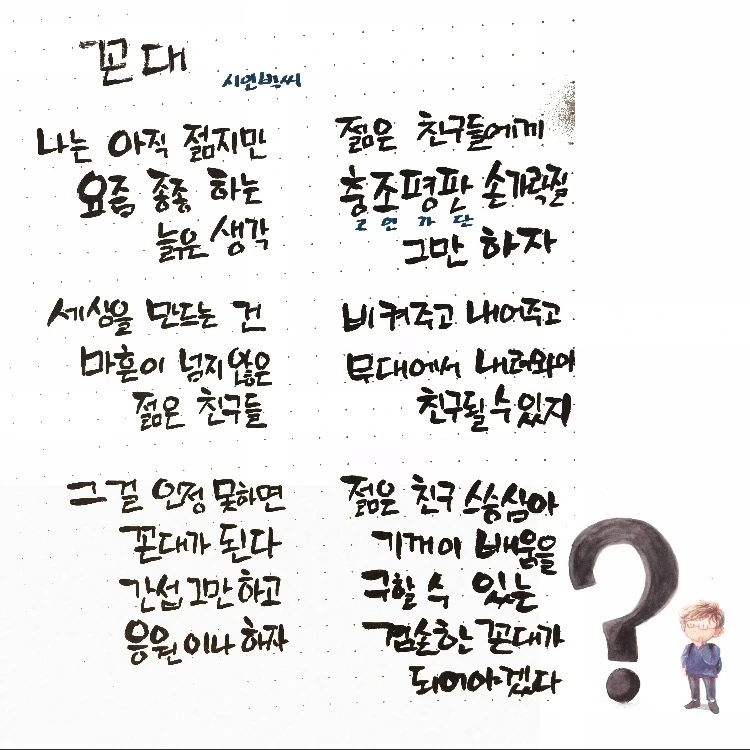 꼰대
시인박씨
나는 아직 젊지만
요즘 종종 하는
늙은 생각
세상을 만드는 건
마흔이 넘지 않은
젊은 친구들
그걸 인정 못하면
꼰대가 된다
간섭 그만 하고
응원이나 하자
젊은 친구들에게
충조평판 손가락질
고 언 가 단
그만 하자
비켜주고 내어주고
무대에서 내려와야
친구될 수 있지
젊은 친구 스승삼아
기꺼이 배움을
구할 수 있는
겸손한 꼰대가
되어야겠다
?